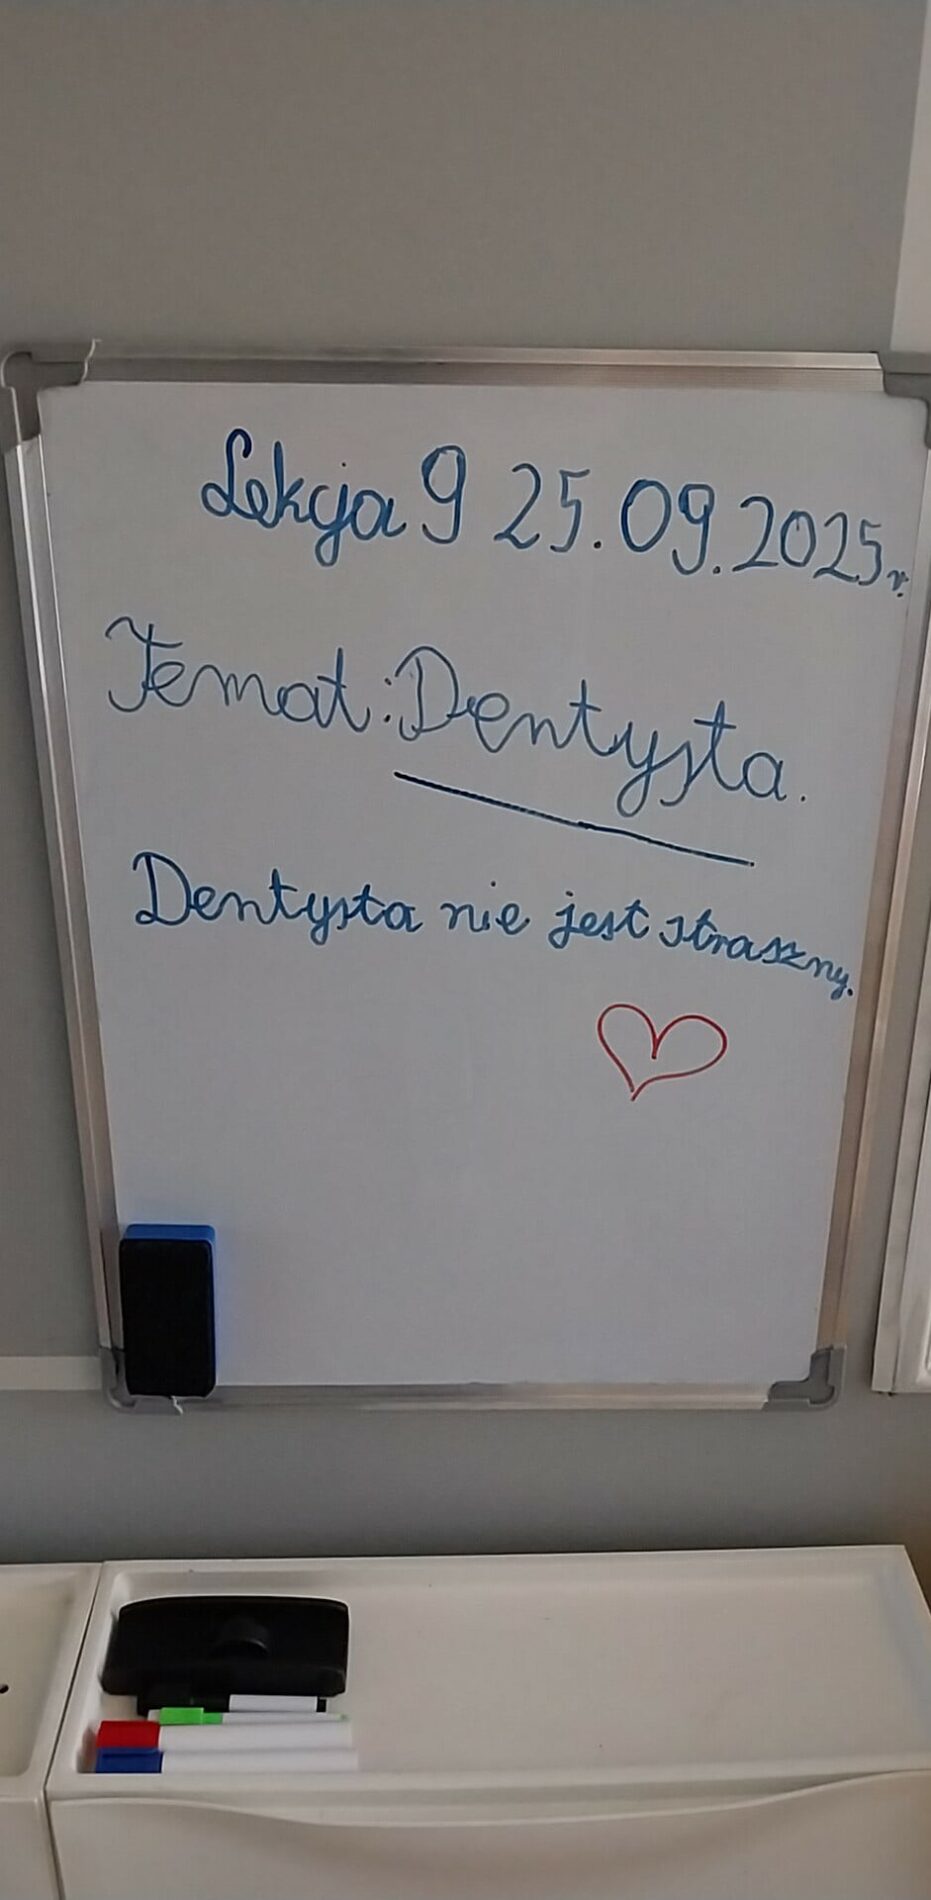 Lekcja 9 25.09.2025r.
Temat: Dentysta.
Dentysta nie jest straszny.